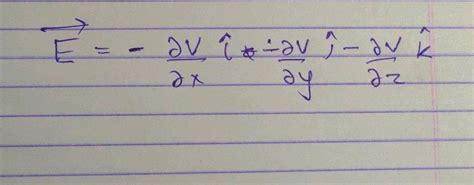 $\overrightarrow{E} = - \frac{\partial V}{\partial x} \hat{i} - \frac{\partial V}{\partial y} \hat{j} - \frac{\partial V}{\partial z} \hat{k}$